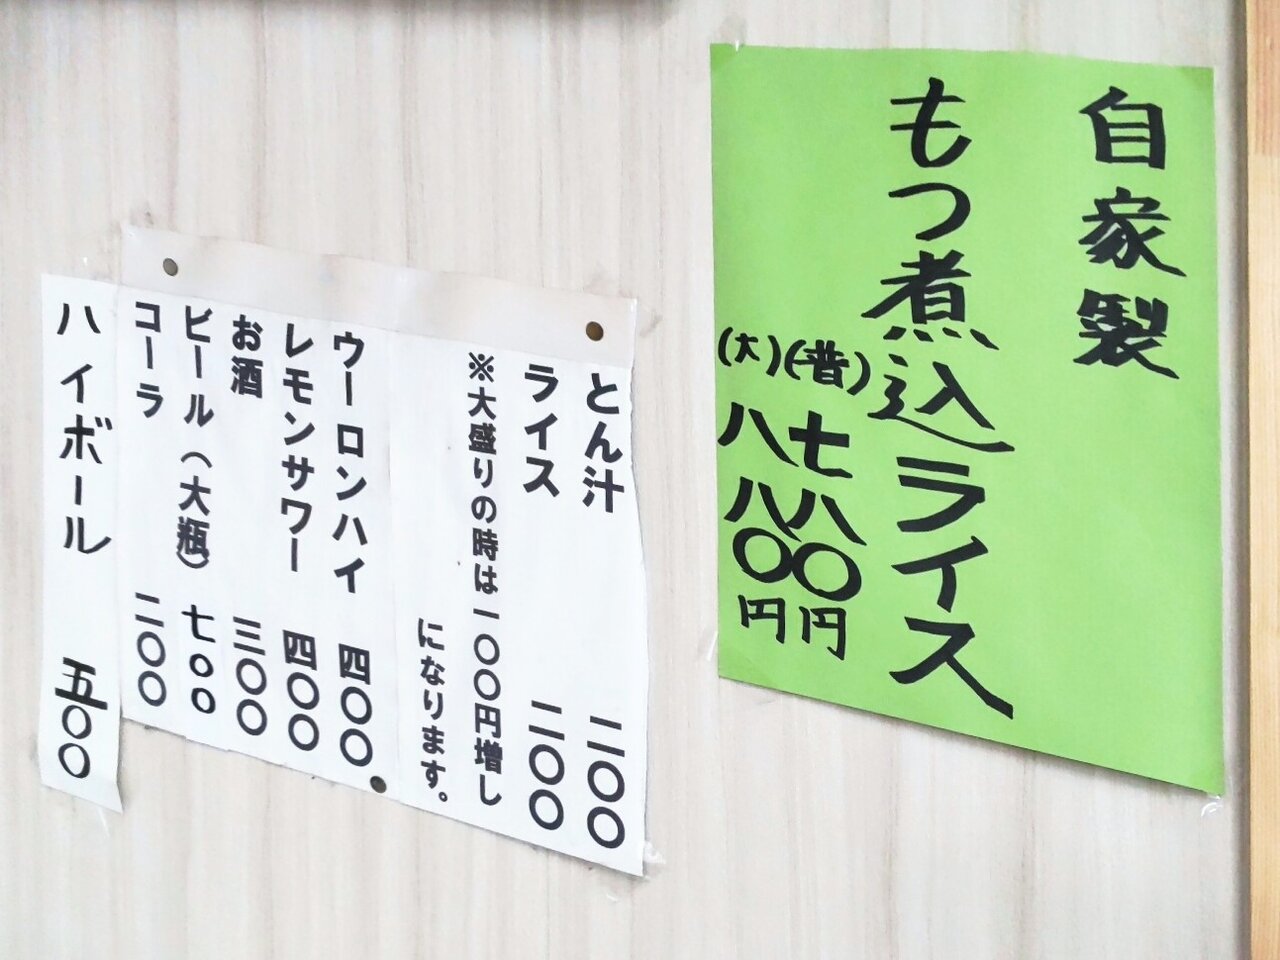 自家製
もつ煮込ライス
(普)七八〇円
(大)八八〇円
とん汁 二〇〇
ライス 二〇〇
※大盛りの時は一〇〇円増し
になります。
ウーロンハイ 四〇〇
レモンサワー 四〇〇
お酒 三〇〇
ビール(大瓶) 七〇〇
コーラ 二〇〇
ハイボール 五〇〇